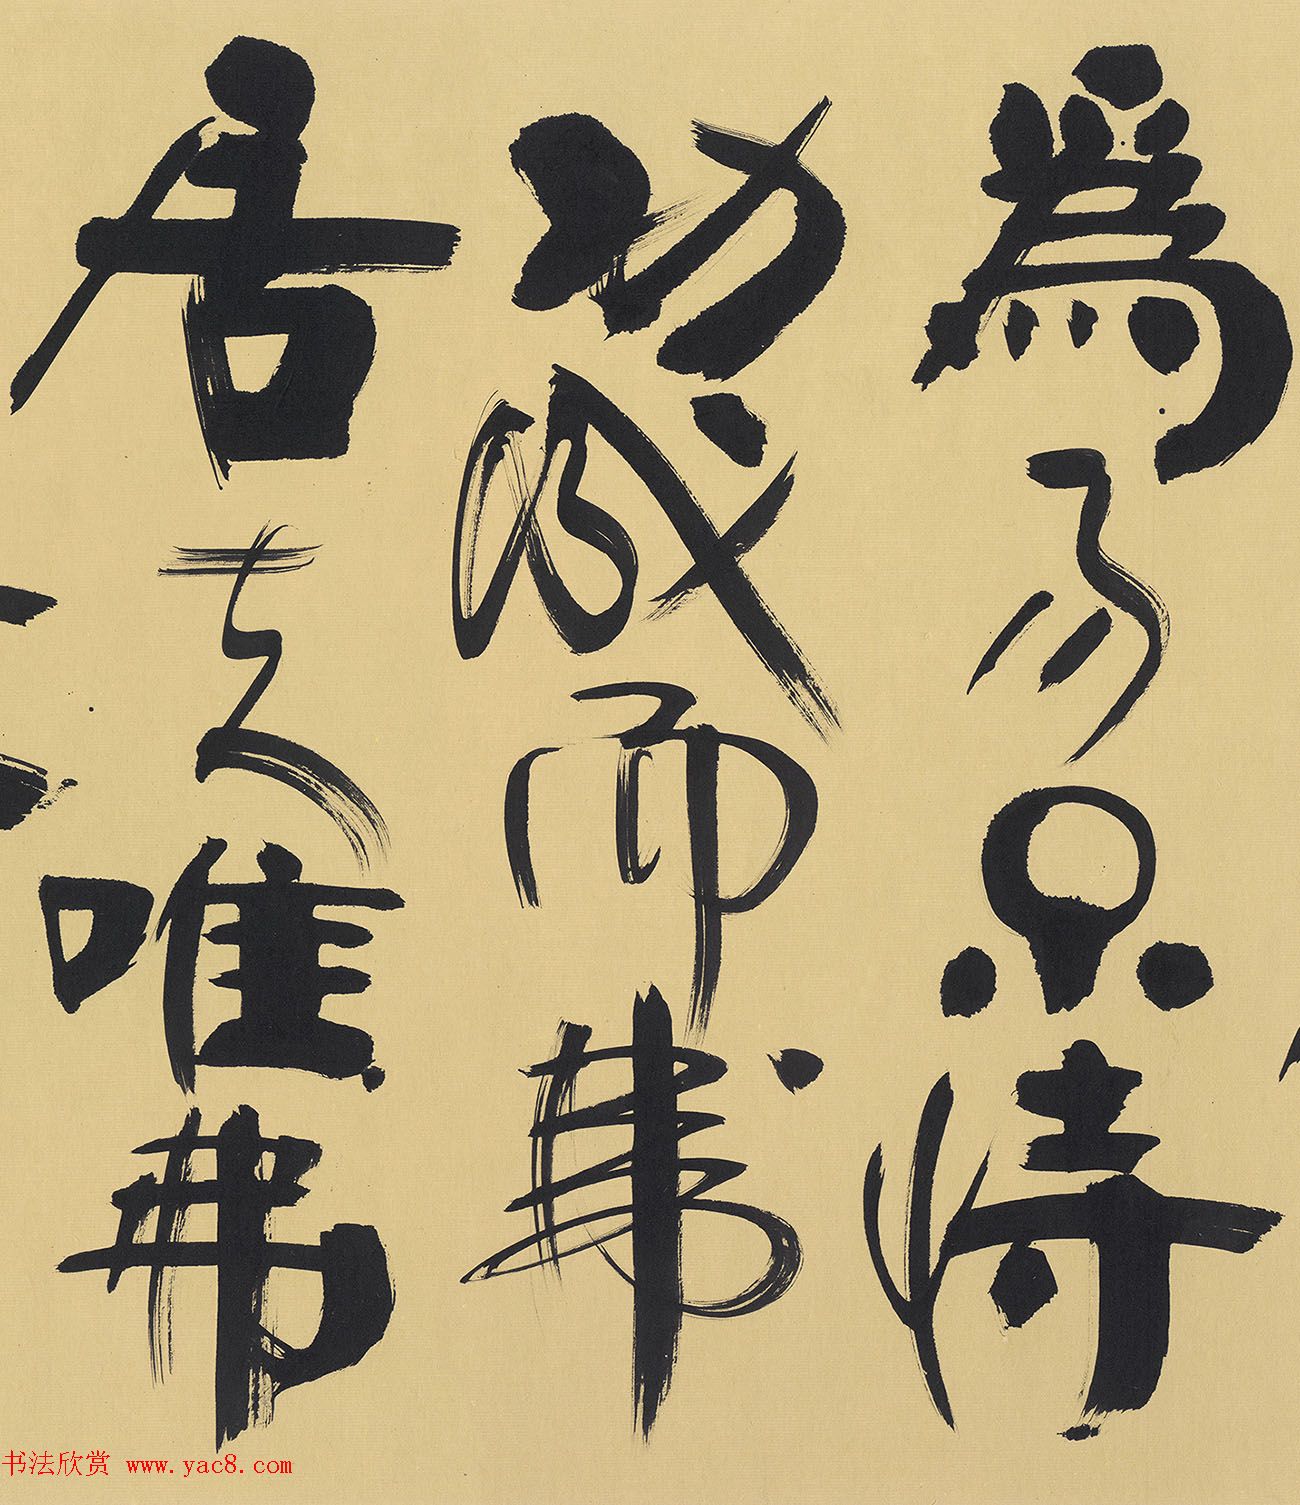 爲而不恃
功成而弗
居夫唯弗
书法欣赏 www.yac8.com